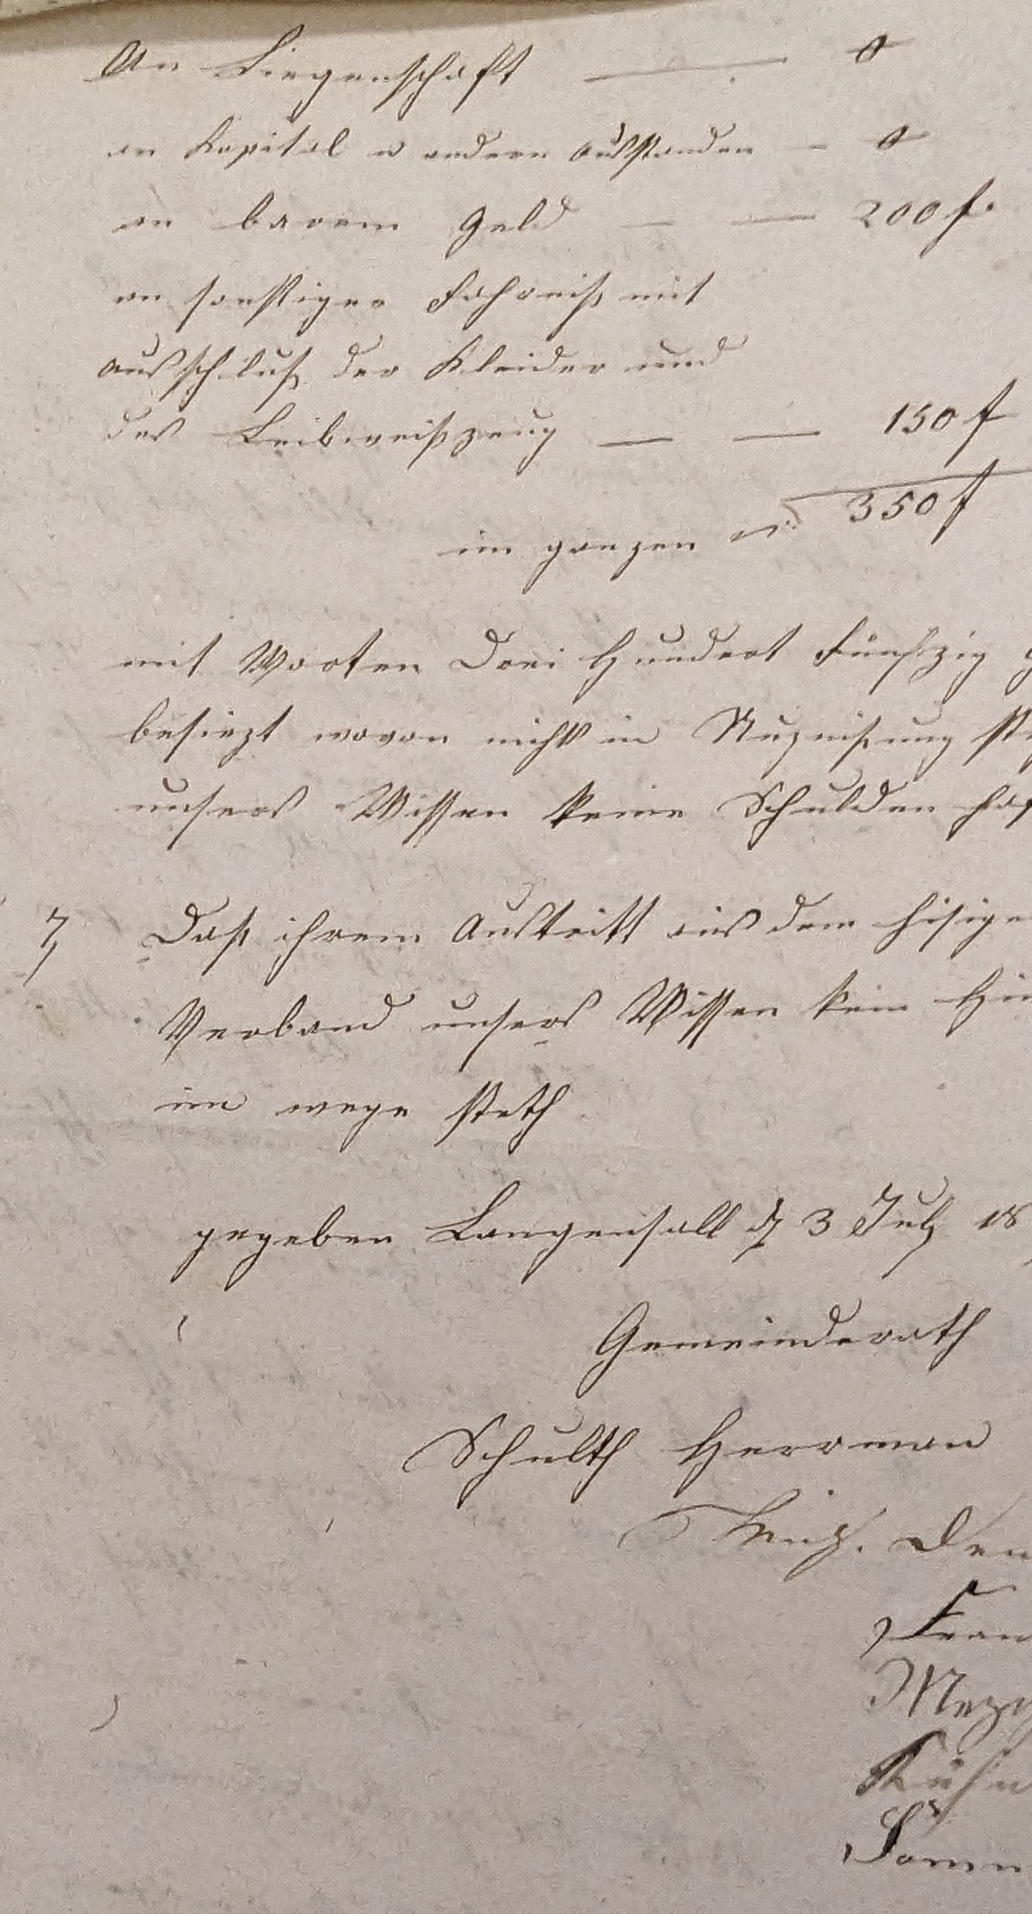 An Liegenschaft — 0
an Kapital u andern Ausständen — 0
an barem Geld — — 200 f.
an sonstiger Fahrniß mit
Ausschluß der Kleider und
des Leibweißzeug — — 150 f
im ganzen 350 f
mit Worten Drei Hundert Fünfzig
besiezt wovon nichts in Nuznießung
unsers Wissen keine Schulden
7, Daß ihrem Austritt aus dem hisige
Verband unsers Wissen kein Hin
im wege steth
gegeben Langensall d 3 July 18
Gemeinderath
Schulth Herrman
Den
Fran
Mezg
Kühn
Somm